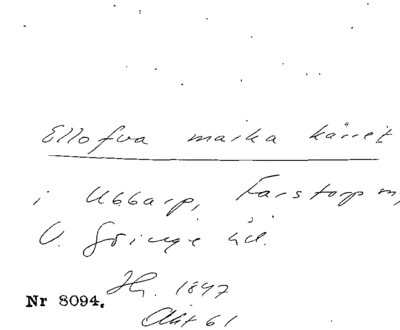 Ellofva maika kärret
i Ubbarp, Farstorp m,
V. Göinge hd.
Hr. 1847
Nr 8094.
Akt 61